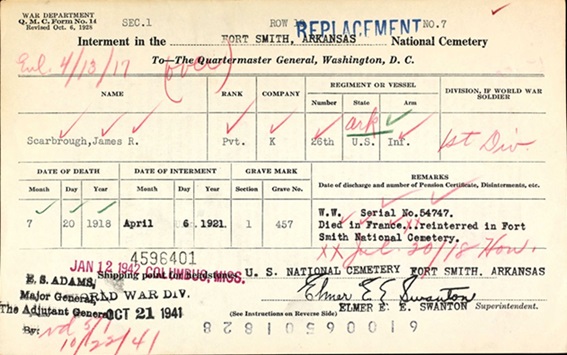 WAR DEPARTMENT
Q. M. C. Form No. 14
Revised Oct. 6, 1928
SEC.1 ROW REPLACEMENT NO.7
Interment in the FORT SMITH, ARKANSAS National Cemetery
To—The Quartermaster General, Washington, D. C.
Enl. 4/13/17 (over)
NAME RANK COMPANY REGIMENT OR VESSEL DIVISION, IF WORLD WAR SOLDIER
Number State Arm
Ark
Scarbrough,James R. Pvt. K 26th U.S. Inf. 1st Div.
DATE OF DEATH DATE OF INTERMENT GRAVE MARK REMARKS
Month Day Year Month Day Year Section Grave No. Date of discharge and number of Pension Certificate, Disinterments, etc.
7 20 1918 April 6 1921 1 457
W.W. Serial No.54747.
Died in France..reinterred in Fort
Smith National Cemetery.
XX Jul. 20/18 Hon.
4596401
JAN 12 1942 COLUMBUS, MISS.
Shipping point for headstone
U. S. NATIONAL CEMETERY FORT SMITH, ARKANSAS
E. S. ADAMS,
Major General
WORLD WAR DIV.
The Adjutant General
OCT 21 1941
Elmer E. Swanton
ELMER E. E. SWANTON Superintendent.
(See Instructions on Reverse Side)
By:
10/22/41